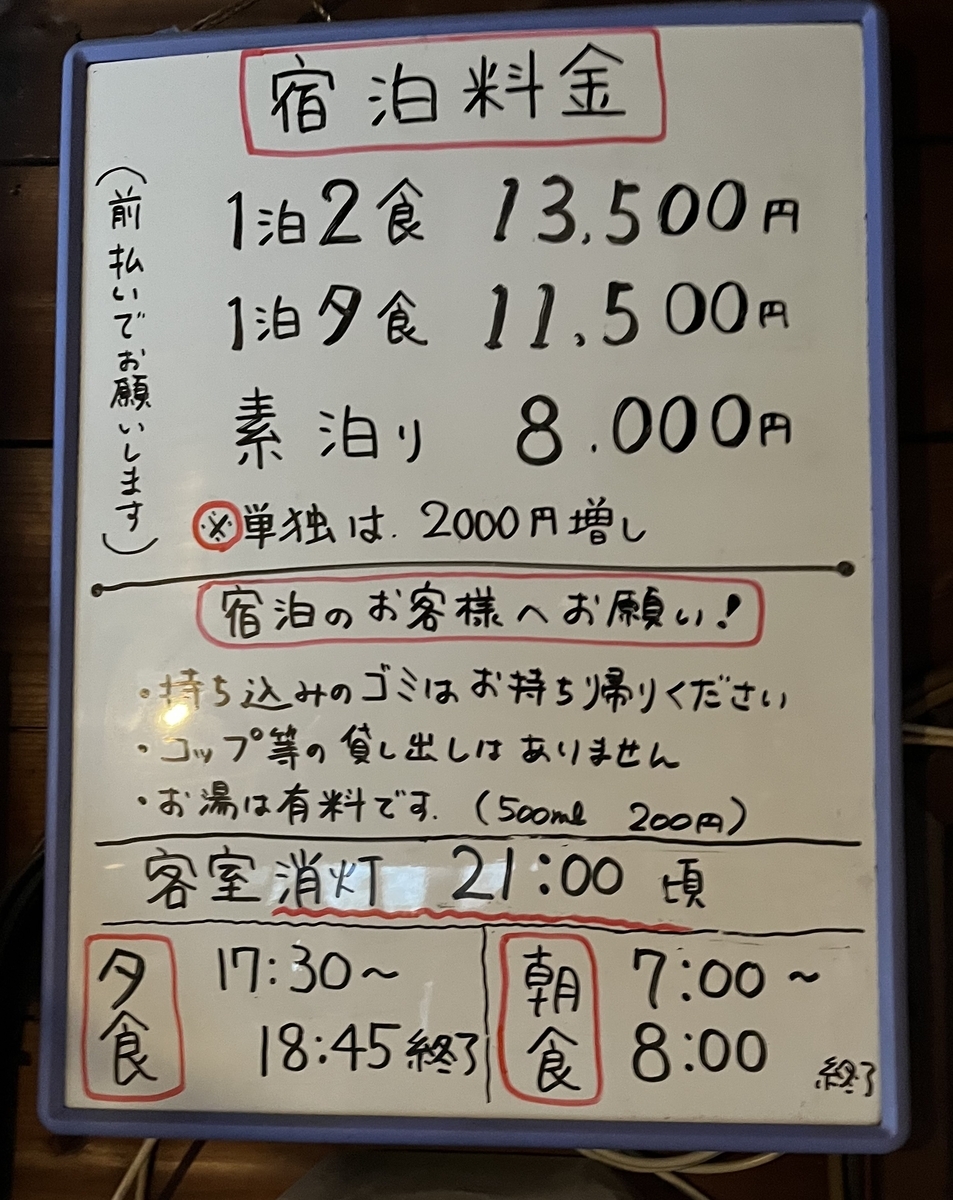 宿泊料金
(前払いでお願いします)
1泊2食 13,500円
1泊夕食 11,500円
素泊り 8.000円
※単独は. 2000円増し
宿泊のお客様へお願い!
・持ち込みのゴミはお持ち帰りください
・コップ等の貸し出しはありません
・お湯は有料です. (500ml 200円)
客室消灯 21:00 頃
夕食 17:30~
18:45終了
朝食 7:00~
8:00 終了